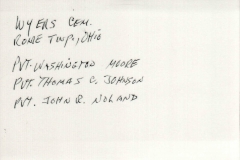 WYERS CEM.
ROME TWP., OHIO
PVT. WASHINGTON MOORE
PVT. THOMAS C. JOHNSON
PVT. JOHN R. NOLAND